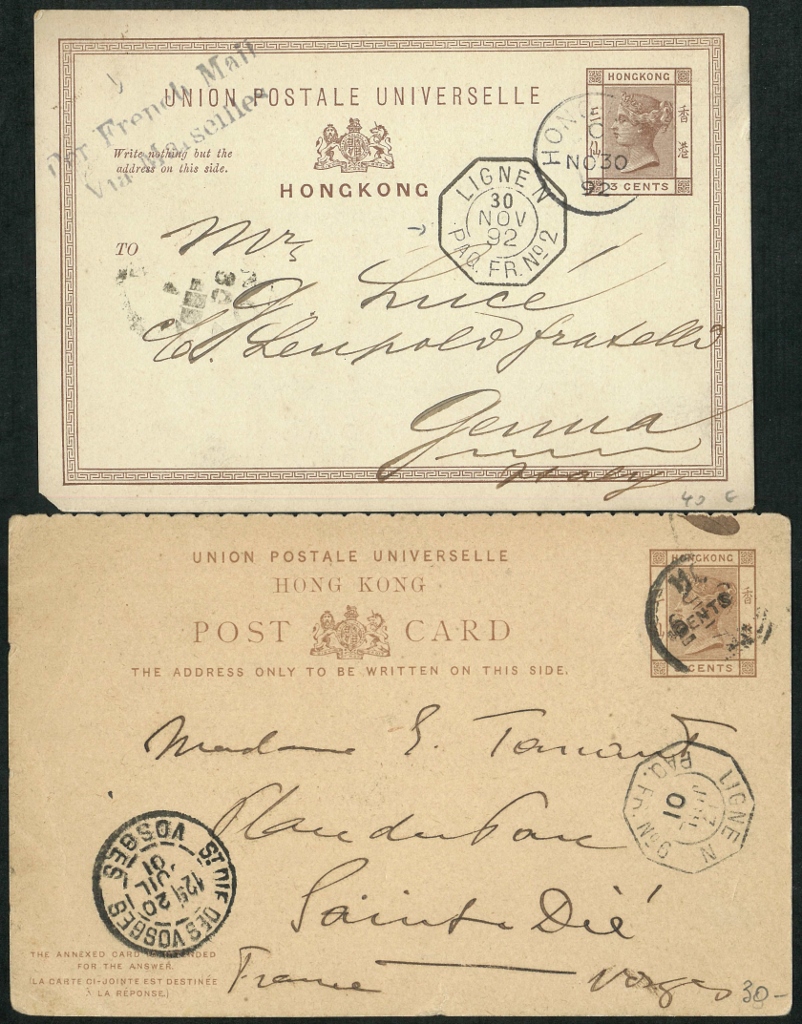 Per French Mail
Via Marseilles
UNION POSTALE UNIVERSELLE
HONGKONG
香港
3 CENTS
HONG
NO 30
92
Write nothing but the
address on this side.
HONGKONG
LIGNE N
30
NOV
92
PAQ. FR. Nº 2
TO
Mrs
G. Lucé
Leupold fratelli
Genua
Italy
40 €
UNION POSTALE UNIVERSELLE
HONG KONG
POST CARD
THE ADDRESS ONLY TO BE WRITTEN ON THIS SIDE.
HONGKONG
香
CENTS
CENTS
LIGNE N
01
PAQ. FR. Nº 9
Madame E.
Place du Parc
Sainte Dié
France
Vosges
ST DIÉ DES VOSGES
20
JUIL
01
VOSGES
THE ANNEXED CARD IS INTENDED
FOR THE ANSWER.
(LA CARTE CI-JOINTE EST DESTINÉE
À LA RÉPONSE.)
30-